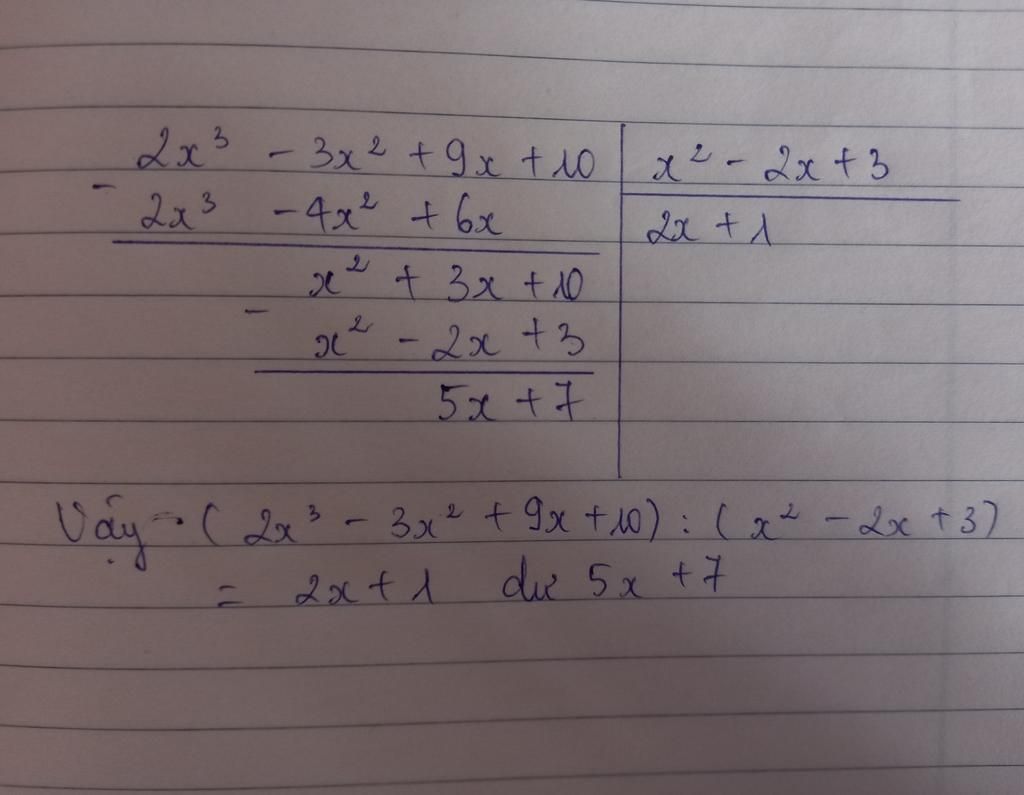 2x³ - 3x² + 9x + 10 | x² - 2x + 3
- 2x³ - 4x² + 6x | 2x + 1
x² + 3x + 10
- x² - 2x + 3
5x + 7
Vậy (2x³ - 3x² + 9x + 10) : (x² - 2x + 3)
= 2x + 1 dư 5x + 7